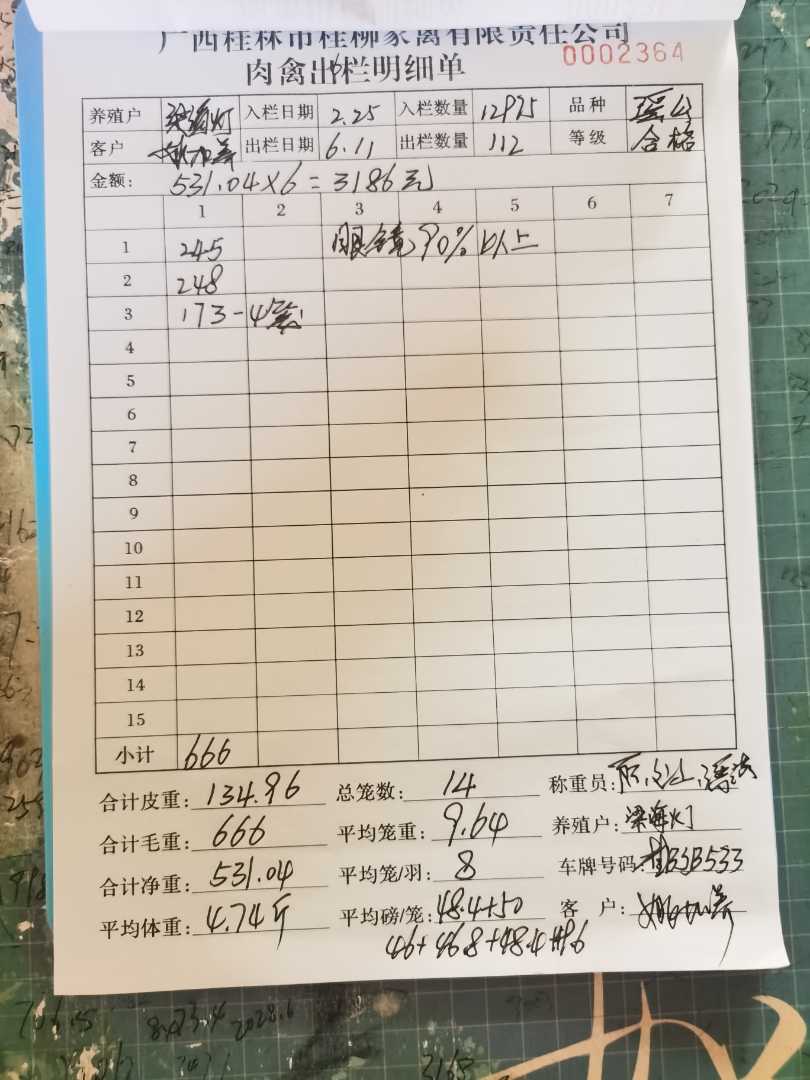 广西桂林市桂柳家禽有限责任公司
肉禽出栏明细单 0002364
养殖户 梁海灯 入栏日期 2.25 入栏数量 12975 品种 瑶
客户 出栏日期 6.11 出栏数量 112 等级 合格
金额: 531.04×6=3186元
1 2 3 4 5 6 7
1 245 眼镜90%以上
2 248
3 173-4笼
4
5
6
7
8
9
10
11
12
13
14
15
小计 666
合计皮重: 134.96 总笼数: 14 称重员:
合计毛重: 666 平均笼重: 9.64 养殖户: 梁海灯
合计净重: 531.04 平均笼/羽: 8 车牌号码: 桂B3B533
平均体重: 4.74斤 平均磅/笼: 48.4+50 客户:
46+46.8+48.4+49.6
706.5
2028.6
3168